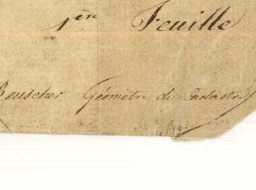 1ère Feuille
Géomètre du Cadastre